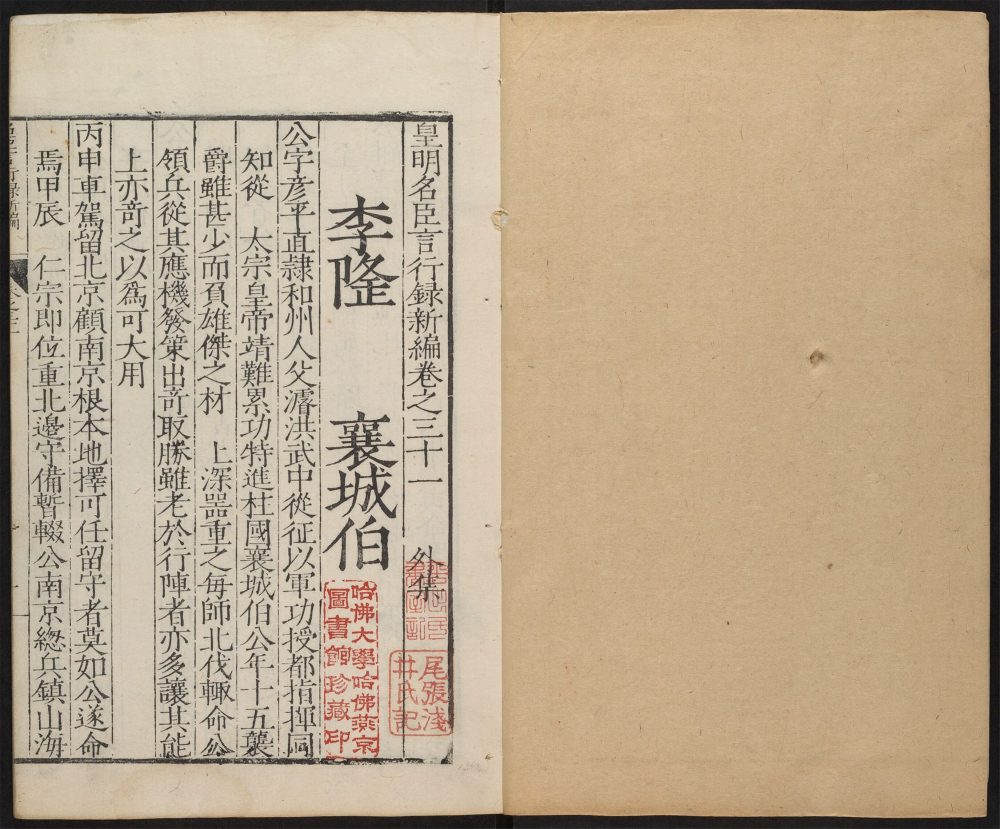 皇明名臣言行録新編卷之三十一 外集
李隆 襄城伯
公字彦平直隷和州人父濬洪武中從征以軍功授都指揮同
知從 太宗皇帝靖難累功特進柱國襄城伯公年十五襲
爵雖甚少而負雄傑之材 上深噐重之毎師北伐輙命公
領兵從其應機發策出竒取勝雖老於行陣者亦多讓其能
上亦竒之以爲可大用
丙申車駕留北京顧南京根本地擇可任留守者莫如公遂命
焉甲辰 仁宗即位重北邊守備暫輟公南京緫兵鎮山海
名臣言行録新編
卷之三
一
哈佛大學哈佛燕京
圖書館珍藏印
尾張淺
井氏記